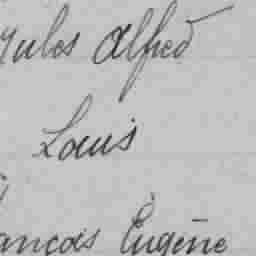 Jules Alfred
Louis
ançois Eugène